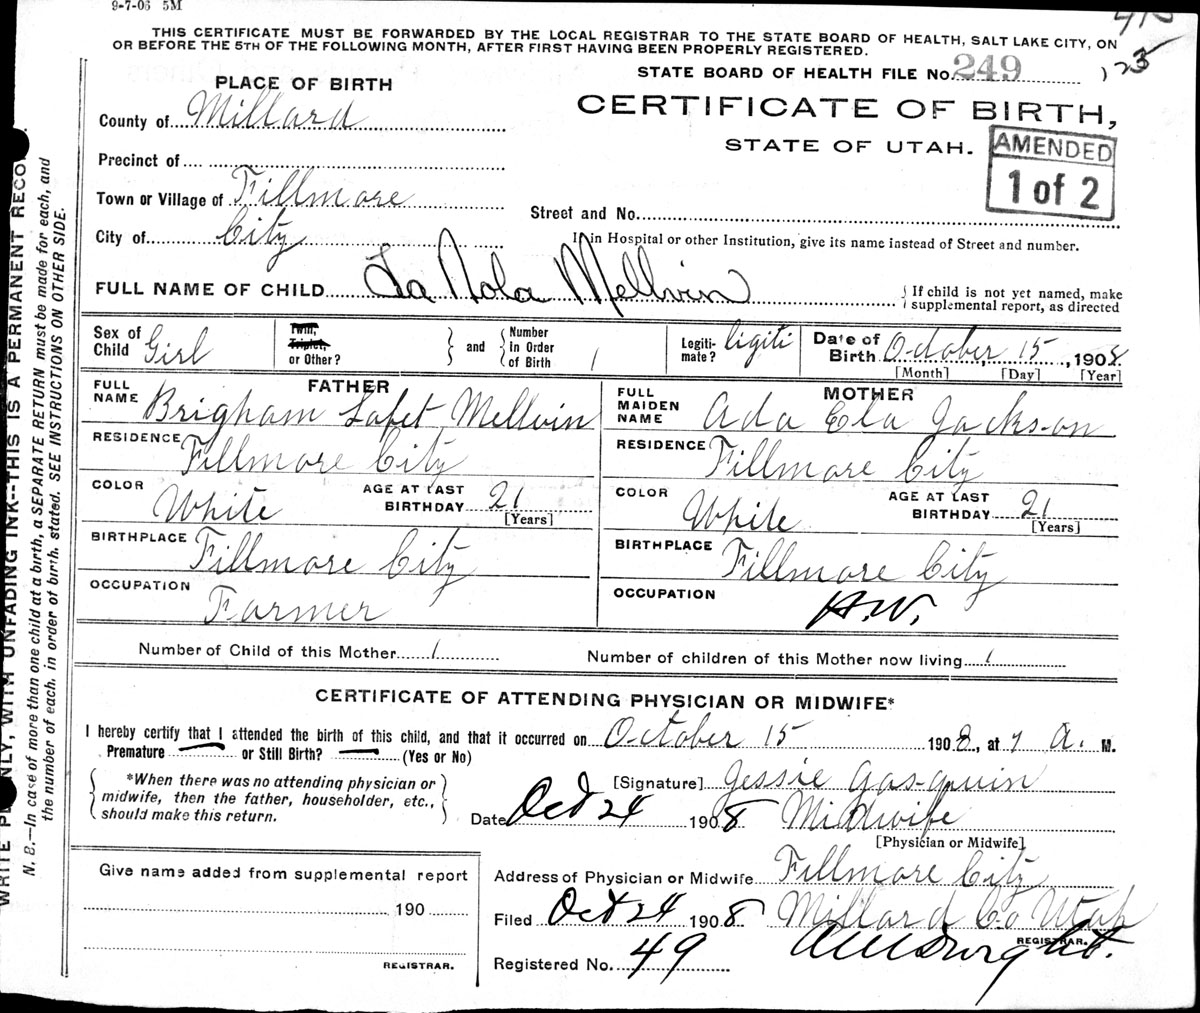 9-7-06 5M
THIS CERTIFICATE MUST BE FORWARDED BY THE LOCAL REGISTRAR TO THE STATE BOARD OF HEALTH, SALT LAKE CITY, ON
OR BEFORE THE 5TH OF THE FOLLOWING MONTH, AFTER FIRST HAVING BEEN PROPERLY REGISTERED.
STATE BOARD OF HEALTH FILE No. 249
125
PLACE OF BIRTH
CERTIFICATE OF BIRTH,
STATE OF UTAH.
AMENDED
1 of 2
County of Millard
Precinct of
Town or Village of Fillmore
City of City
Street and No.
If in Hospital or other Institution, give its name instead of Street and number.
FULL NAME OF CHILD La Nola Mellvin
If child is not yet named, make
supplemental report, as directed
Sex of Child Girl
Twin, Triplet, or Other?
and Number in Order of Birth 1
Legiti-mate? ligiti
Date of Birth October 15, 1908
[Month] [Day] [Year]
FATHER
FULL NAME Brigham Lafet Mellvin
RESIDENCE Fillmore City
COLOR White AGE AT LAST BIRTHDAY 21
[Years]
BIRTHPLACE Fillmore City
OCCUPATION Farmer
MOTHER
FULL MAIDEN NAME Ada Ela Jackson
RESIDENCE Fillmore City
COLOR White AGE AT LAST BIRTHDAY 21
[Years]
BIRTHPLACE Fillmore City
OCCUPATION H.W.
Number of Child of this Mother 1
Number of children of this Mother now living 1
CERTIFICATE OF ATTENDING PHYSICIAN OR MIDWIFE*
I hereby certify that I attended the birth of this child, and that it occurred on October 15 1908, at 7 A. M.
Premature — or Still Birth? — (Yes or No)
*When there was no attending physician or
midwife, then the father, householder, etc.,
should make this return.
[Signature] Jessie Gasquin
Date Oct 24 1908 Midwife
[Physician or Midwife]
Give name added from supplemental report
190
REGISTRAR.
Address of Physician or Midwife Fillmore City
Filed Oct 24 1908 Millard Co Utah
REGISTRAR.
Registered No. 49
N. B.—In case of more than one child at a birth, a SEPARATE RETURN must be made for each, and
the number of each, in order of birth, stated. SEE INSTRUCTIONS ON OTHER SIDE.
WITH UNFADING INK--THIS IS A PERMANENT